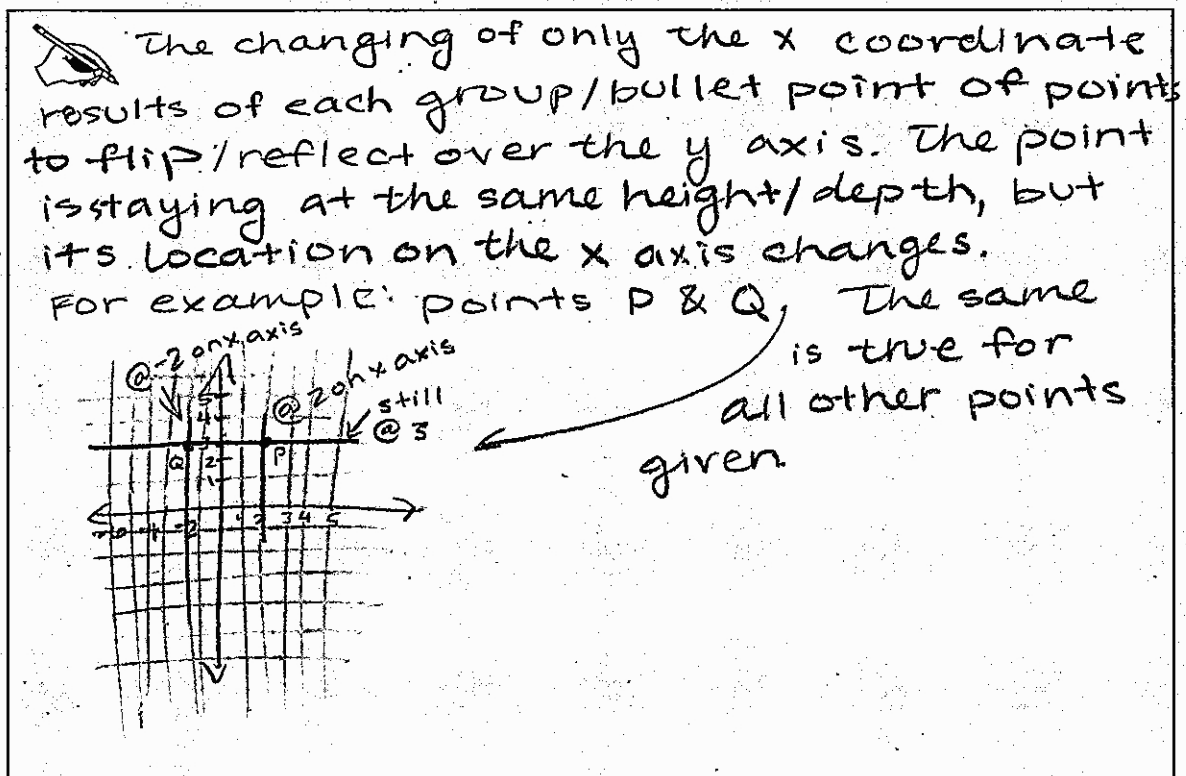 The changing of only the x coordinate
results of each group/bullet point of points
to flip/reflect over the y axis. The point
is staying at the same height/depth, but
its location on the x axis changes.
For example: points P & Q, The same
is true for
all other points
given.
@ -2 on x axis
@ 2 on x axis
still
@ 3
5
4
3
Q P
2
1
-2 1 2 3 4 5